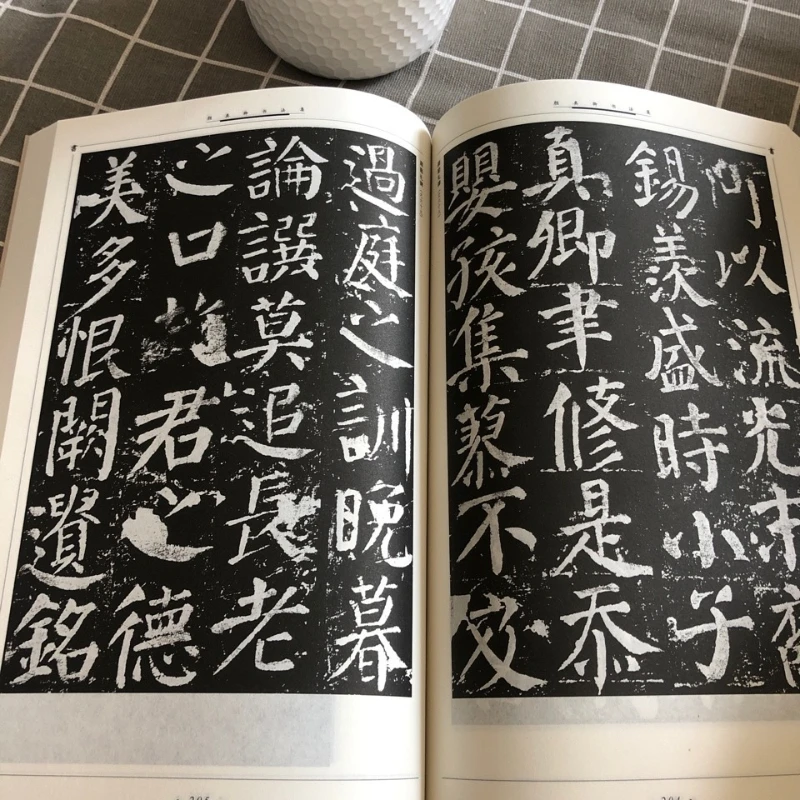 何以流光末裔
錫羨盛時小子
真卿聿修是忝
嬰孩集蓼不及
過庭之訓晚暮
論譔莫追長老
之口故君之德
美多恨闕遺銘